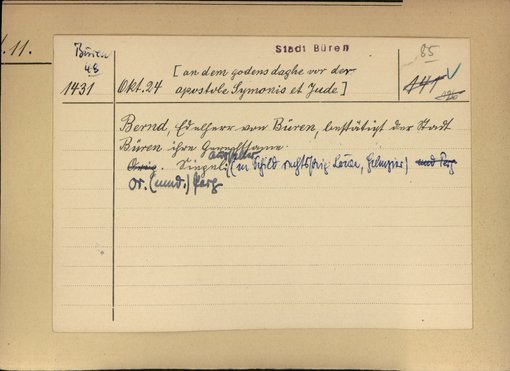 11.
Büren
48
Stadt Büren
85
1431
Okt. 24
[an dem godensdaghe vor der
apostole Symonis et Jude]
Bernd, Edelherr von Büren, bestätigt der Stadt
Büren ihre Gerechtsame.
Orig. Siegel (im Schild rechtsspr. Löwe, Helmzier) und Perg
Or. (mnd.) Perg